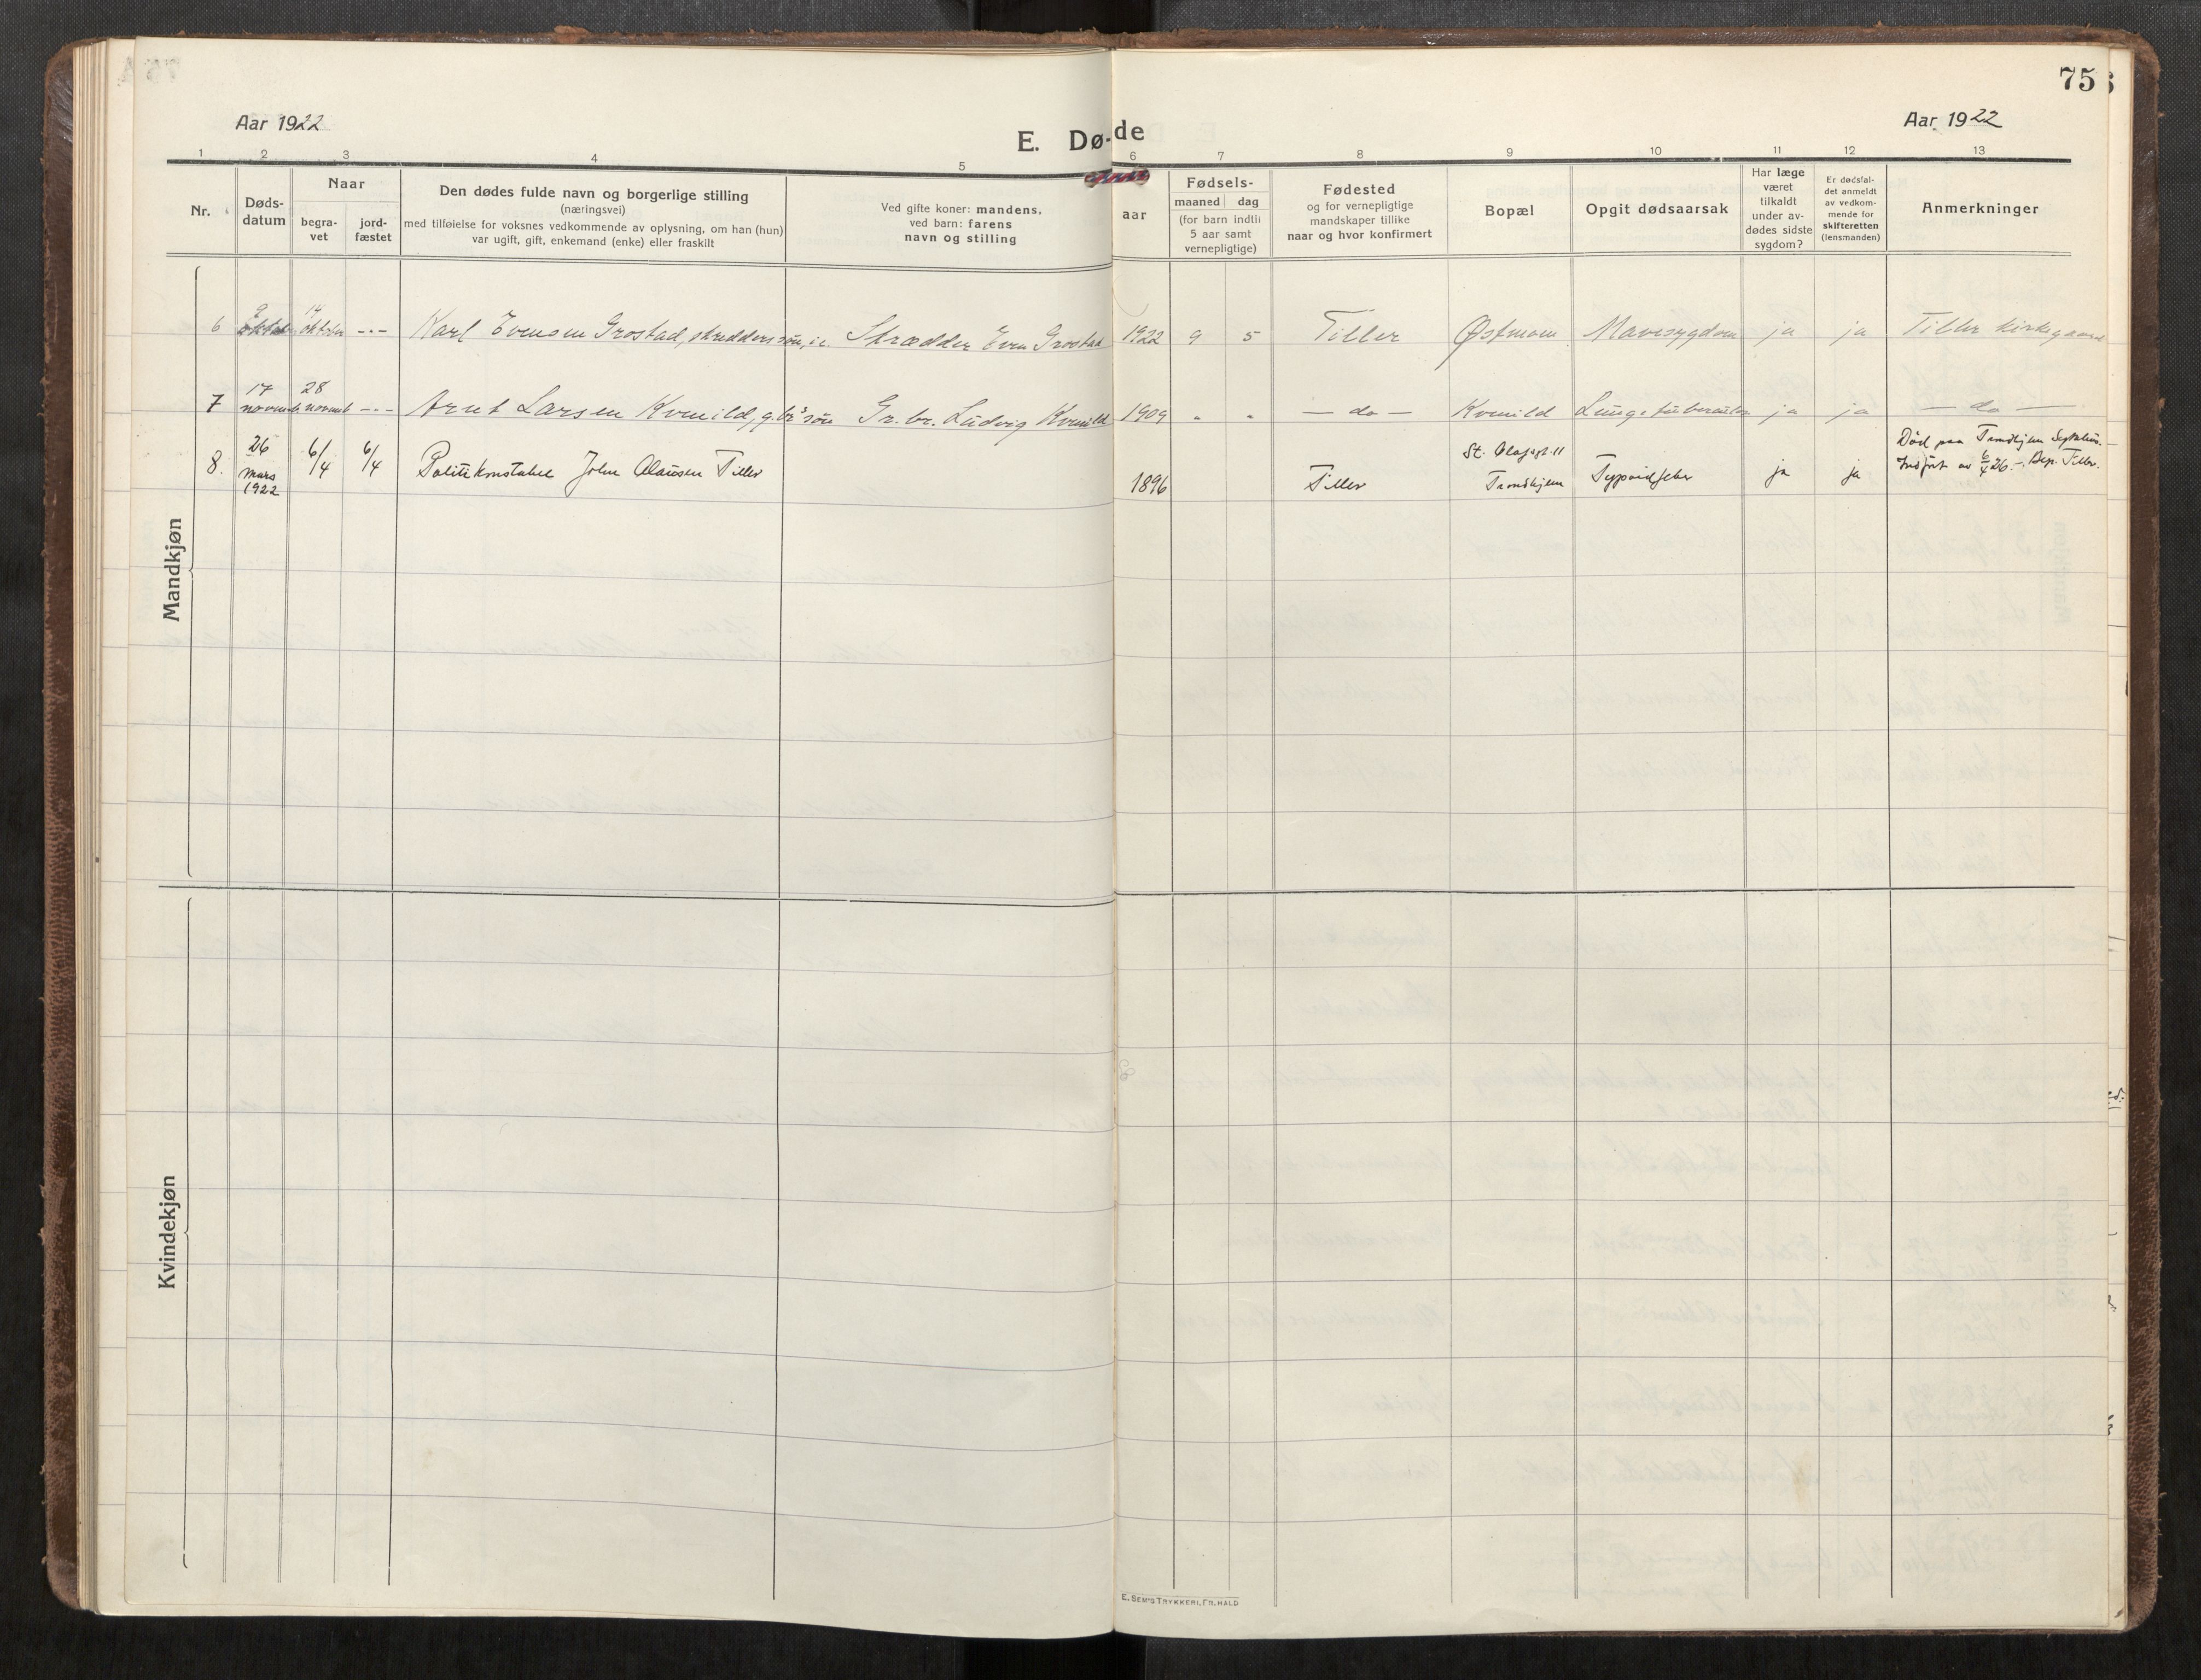 75
Aar 1922
E. Dø-de
Aar 1922
1 2 3 4 5 6 7 8 9 10 11 12 13
Nr.
Døds-
datum
Naar
begra-
vet
jord-
fæstet
Den dødes fulde navn og borgerlige stilling
(næringsvei)
med tilføielse for voksnes vedkommende av oplysning, om han (hun)
var ugift, gift, enkemand (enke) eller fraskilt
Ved gifte koner: mandens,
ved barn: farens
navn og stilling
aar
Fødsels-
maaned dag
(for barn indtil
5 aar samt
vernepligtige)
Fødested
og for vernepligtige
mandskaper tillike
naar og hvor konfirmert
Bopæl
Opgit dødsaarsak
Har læge
været
tilkaldt
under av-
dødes sidste
sygdom?
Er dødsfal-
det anmeldt
av vedkom-
mende for
skifteretten
(lensmanden)
Anmerkninger
Mandkjøn
6 9 oktober 14 oktober -"- Karl Evensen Grostad, skredderssøn, i.e. Skrædder Even Grostad 1922 9 5 Tiller Østmoen Mavesygdom ja ja Tiller kirkegaard
7 17 novemb. 28 novemb -"- Arnt Larsen Kvenild, g.br.s søn Gr. br. Ludvig Kvenild 1909 " " — do — Kvenild Lungetuberculose ja ja — do —
8. 26 mars 1922 6/4 6/4 Politikonstabel John Olausen Tiller 1896 Tiller St. Olafsgt. 11 Trondhjem Typoidfeber ja ja Død paa Trondhjem
6/4 26.- Tiller.
Kvindekjøn
E. SEM'S TRYKKERI, FR. HALD